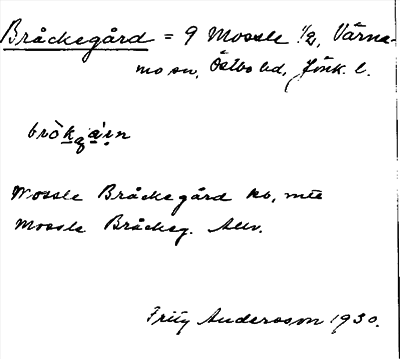 Bråckegård = 9 Mossle 1/2, Värna-
mo sn, Östbo hd, Jönk. l.
Mossle Bråckegård kb,
Mossle Bråckeg.
Fritz Andersson 1930.